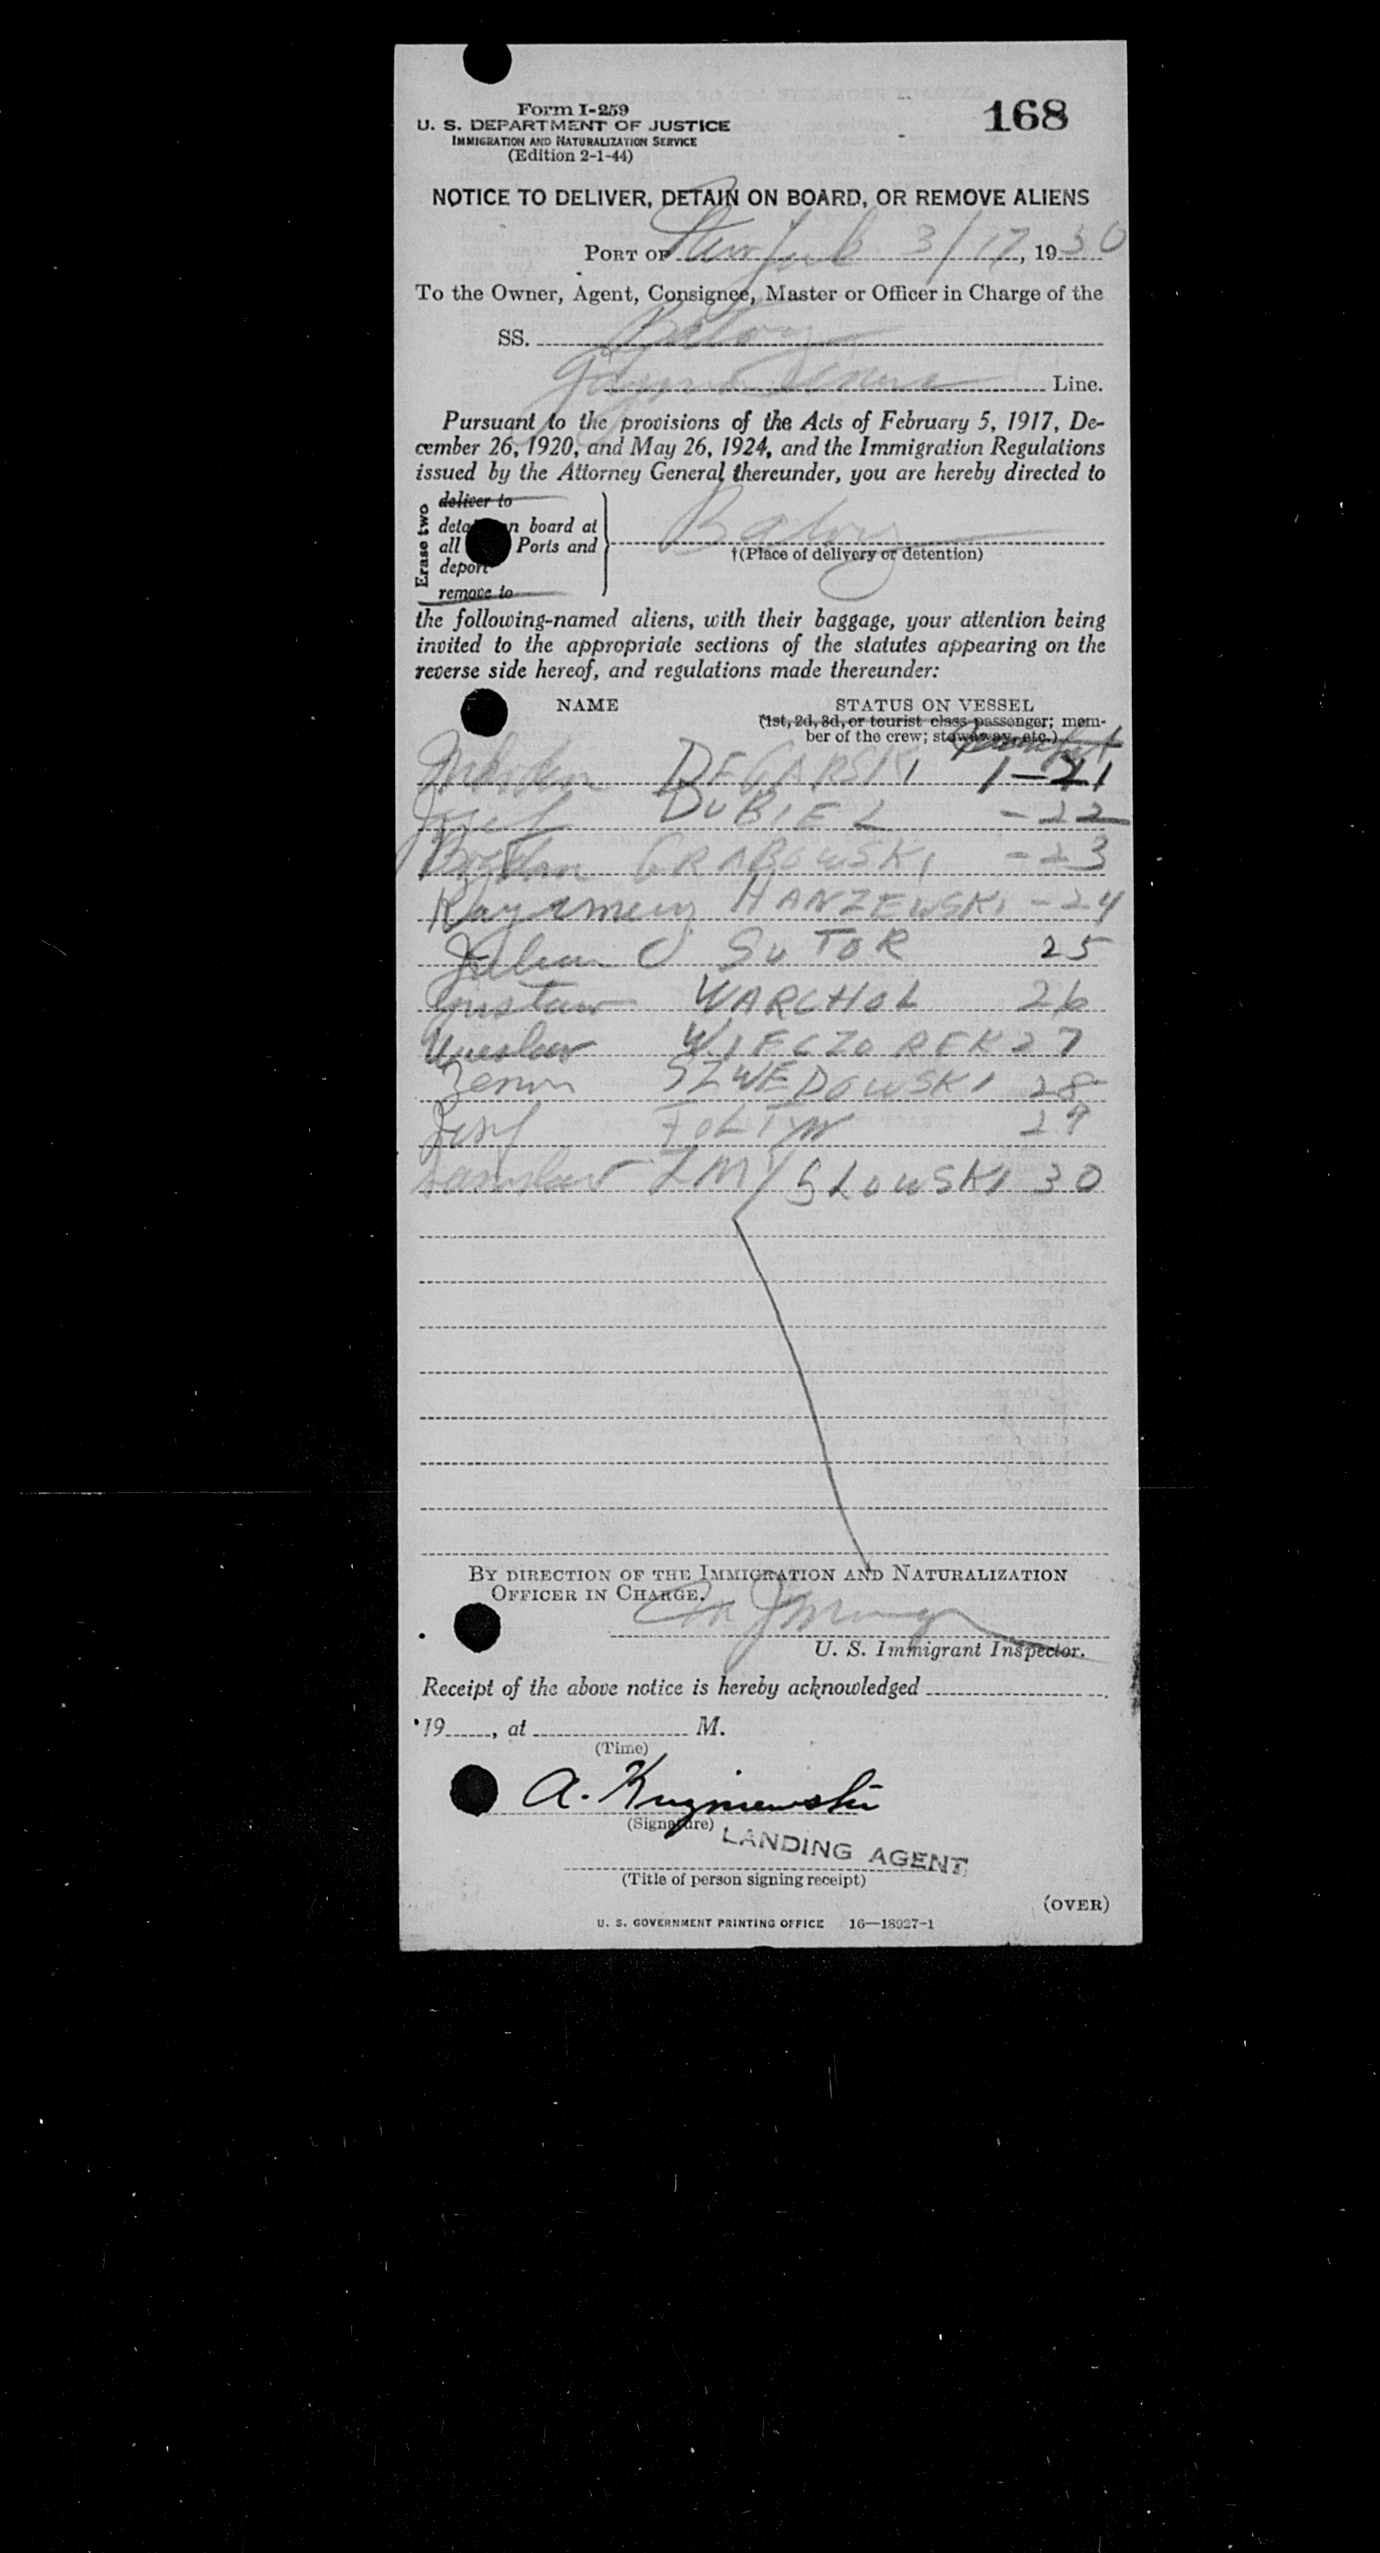 Form I-259
168
U. S. DEPARTMENT OF JUSTICE
IMMIGRATION AND NATURALIZATION SERVICE
(Edition 2-1-44)
NOTICE TO DELIVER, DETAIN ON BOARD, OR REMOVE ALIENS
PORT OF New York 3/17, 1950
To the Owner, Agent, Consignee, Master or Officer in Charge of the
SS. Batory
Gdynia America Line.
Pursuant to the provisions of the Acts of February 5, 1917, De-
cember 26, 1920, and May 26, 1924, and the Immigration Regulations
issued by the Attorney General thereunder, you are hereby directed to
Erase two
deliver to
on board at
all Ports and
deport
remove to
Batory
†(Place of delivery or detention)
the following-named aliens, with their baggage, your attention being
invited to the appropriate sections of the statutes appearing on the
reverse side hereof, and regulations made thereunder:
NAME STATUS ON VESSEL
(1st, 2d, 3d, or tourist class passenger; mem-
ber of the crew; stowaway, etc.)
DEGARSKI 1-21
Josef DUBIEL -22
Bogdan GRABOWSKI -23
Kazimierz HANZEWSKI -24
Julian SUTOR 25
Gustaw WARCHOL 26
Wieslaw WIECZOREK 27
Zenon SZWEDOWSKI 28
Josef FOLTYN 29
ZMYSLOWSKI 30
BY DIRECTION OF THE IMMIGRATION AND NATURALIZATION
OFFICER IN CHARGE.
U. S. Immigrant Inspector.
Receipt of the above notice is hereby acknowledged
19, at M.
(Time)
A. Kuzniewski
(Signature)
LANDING AGENT
(Title of person signing receipt)
(OVER)
U. S. GOVERNMENT PRINTING OFFICE 16—18927-1